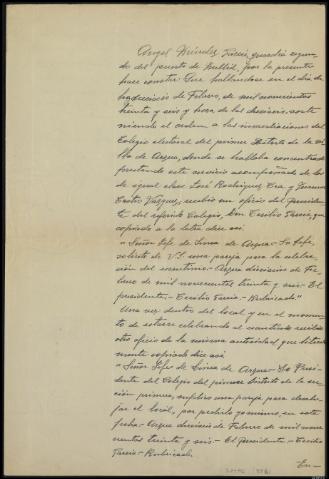 Angel Méndez García, guardia segundo
do del puesto de Mellid, por la presente
hace constar: Que hallandose en el dia de
dieciseis de Febrero, de mil novecientos
treinta y seis y hora de las dieciseis, soste
niendo el orden a las inmediaciones del
Colegio electoral del primer distrito de la vi
lla de Arzua, donde se hallaba concentrado
prestando este servicio acompañado de los
de igual clase José Rodriguez Cea y German
Castro Vazquez, recibió un oficio del Presiden
te del referido Colegio, Don Cecilio Garcia, que
copiado a la letra dice asi
"Señor Jefe de Linea de Arzua- Sr Jefe,
solicito de V.S. una pareja para la celebra
ción del escrutinio- Arzua dieciseis de Fe
brero de mil novecientos treinta y seis- El
presidente- Cecilio Garcia- Rubricado"
Una vez dentro del local y en el momen
to de estarse celebrando el escrutinio recibió
otro oficio de la misma autoridad que literal
mente copiado dice asi
"Señor Jefe de Linea de Arzua- La Presi
dente del Colegio del primer distrito de la sec
ción primera, suplico una pareja para desalo
jar el local, por pedirlo yo mismo, en esta
fecha- Arzua dieciseis de Febrero de mil nove
cientos treinta y seis- El Presidente- Cecilio
Garcia- Rubricado
En-